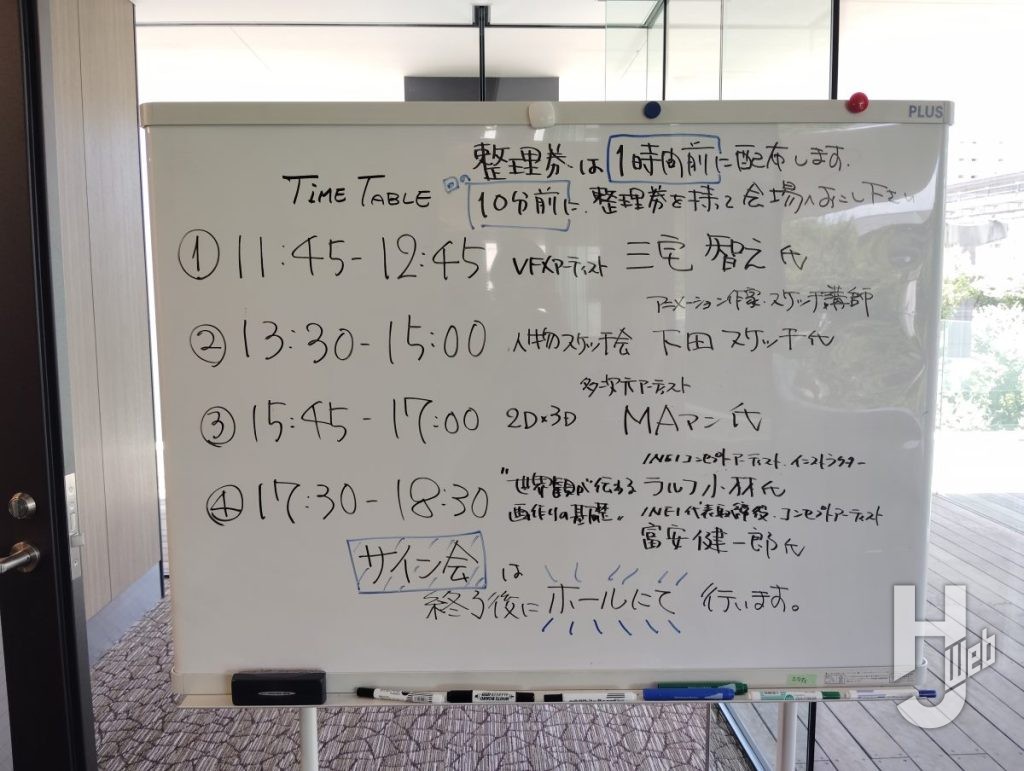 PLUS
整理券は1時間前に配布します.
TIME TABLE
10分前に、整理券を持って会場へおこし下さい
① 11:45-12:45 VFXアーティスト 三宅 智之 氏
アニメーション作家・スケッチ講師
② 13:30-15:00 人物のスケッチ会 下田 スケッチ氏
多次元アーティスト
③ 15:45-17:00 2D×3D MAアン 氏
INEIコンセプトアーティスト・インストラクター
④ 17:30-18:30 "世界観が伝わる ラルフ小林氏
画作りの基礎" INEI代表取締役・コンセプトアーティスト
富安健一郎氏
サイン会は
終了後に ホールにて 行います。
HJ Web